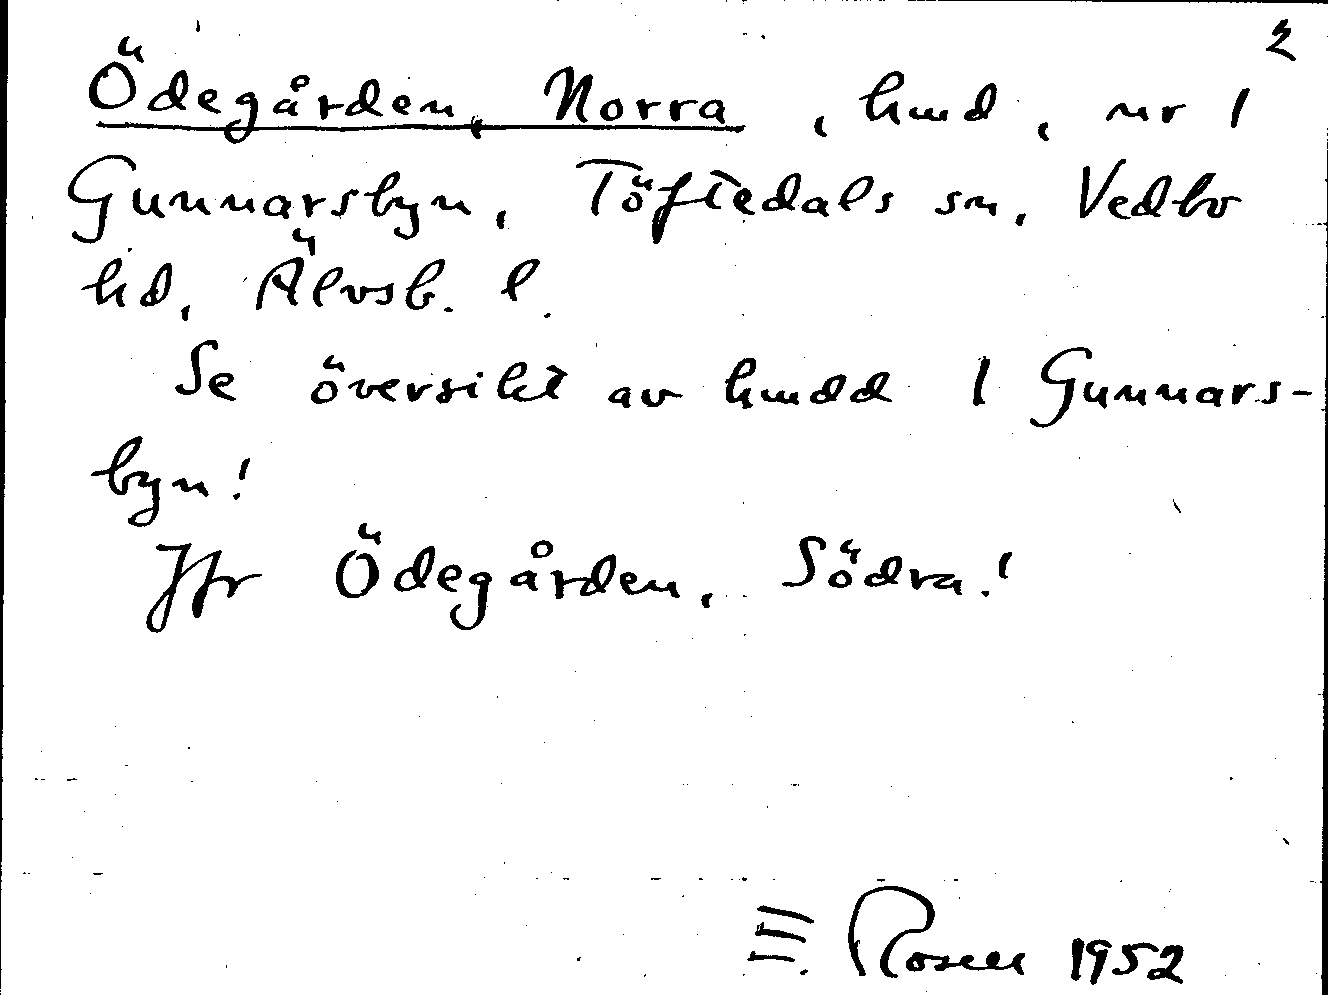 2
Ödegården, Norra, hmd, nr 1
Gunnarsbyn, Töftedals sn, Vedbo
hd, Älvsb. l.
Se översikt av hmdd 1 Gunnars-
byn!
Jfr Ödegården, Södra!
E. Rosell 1952